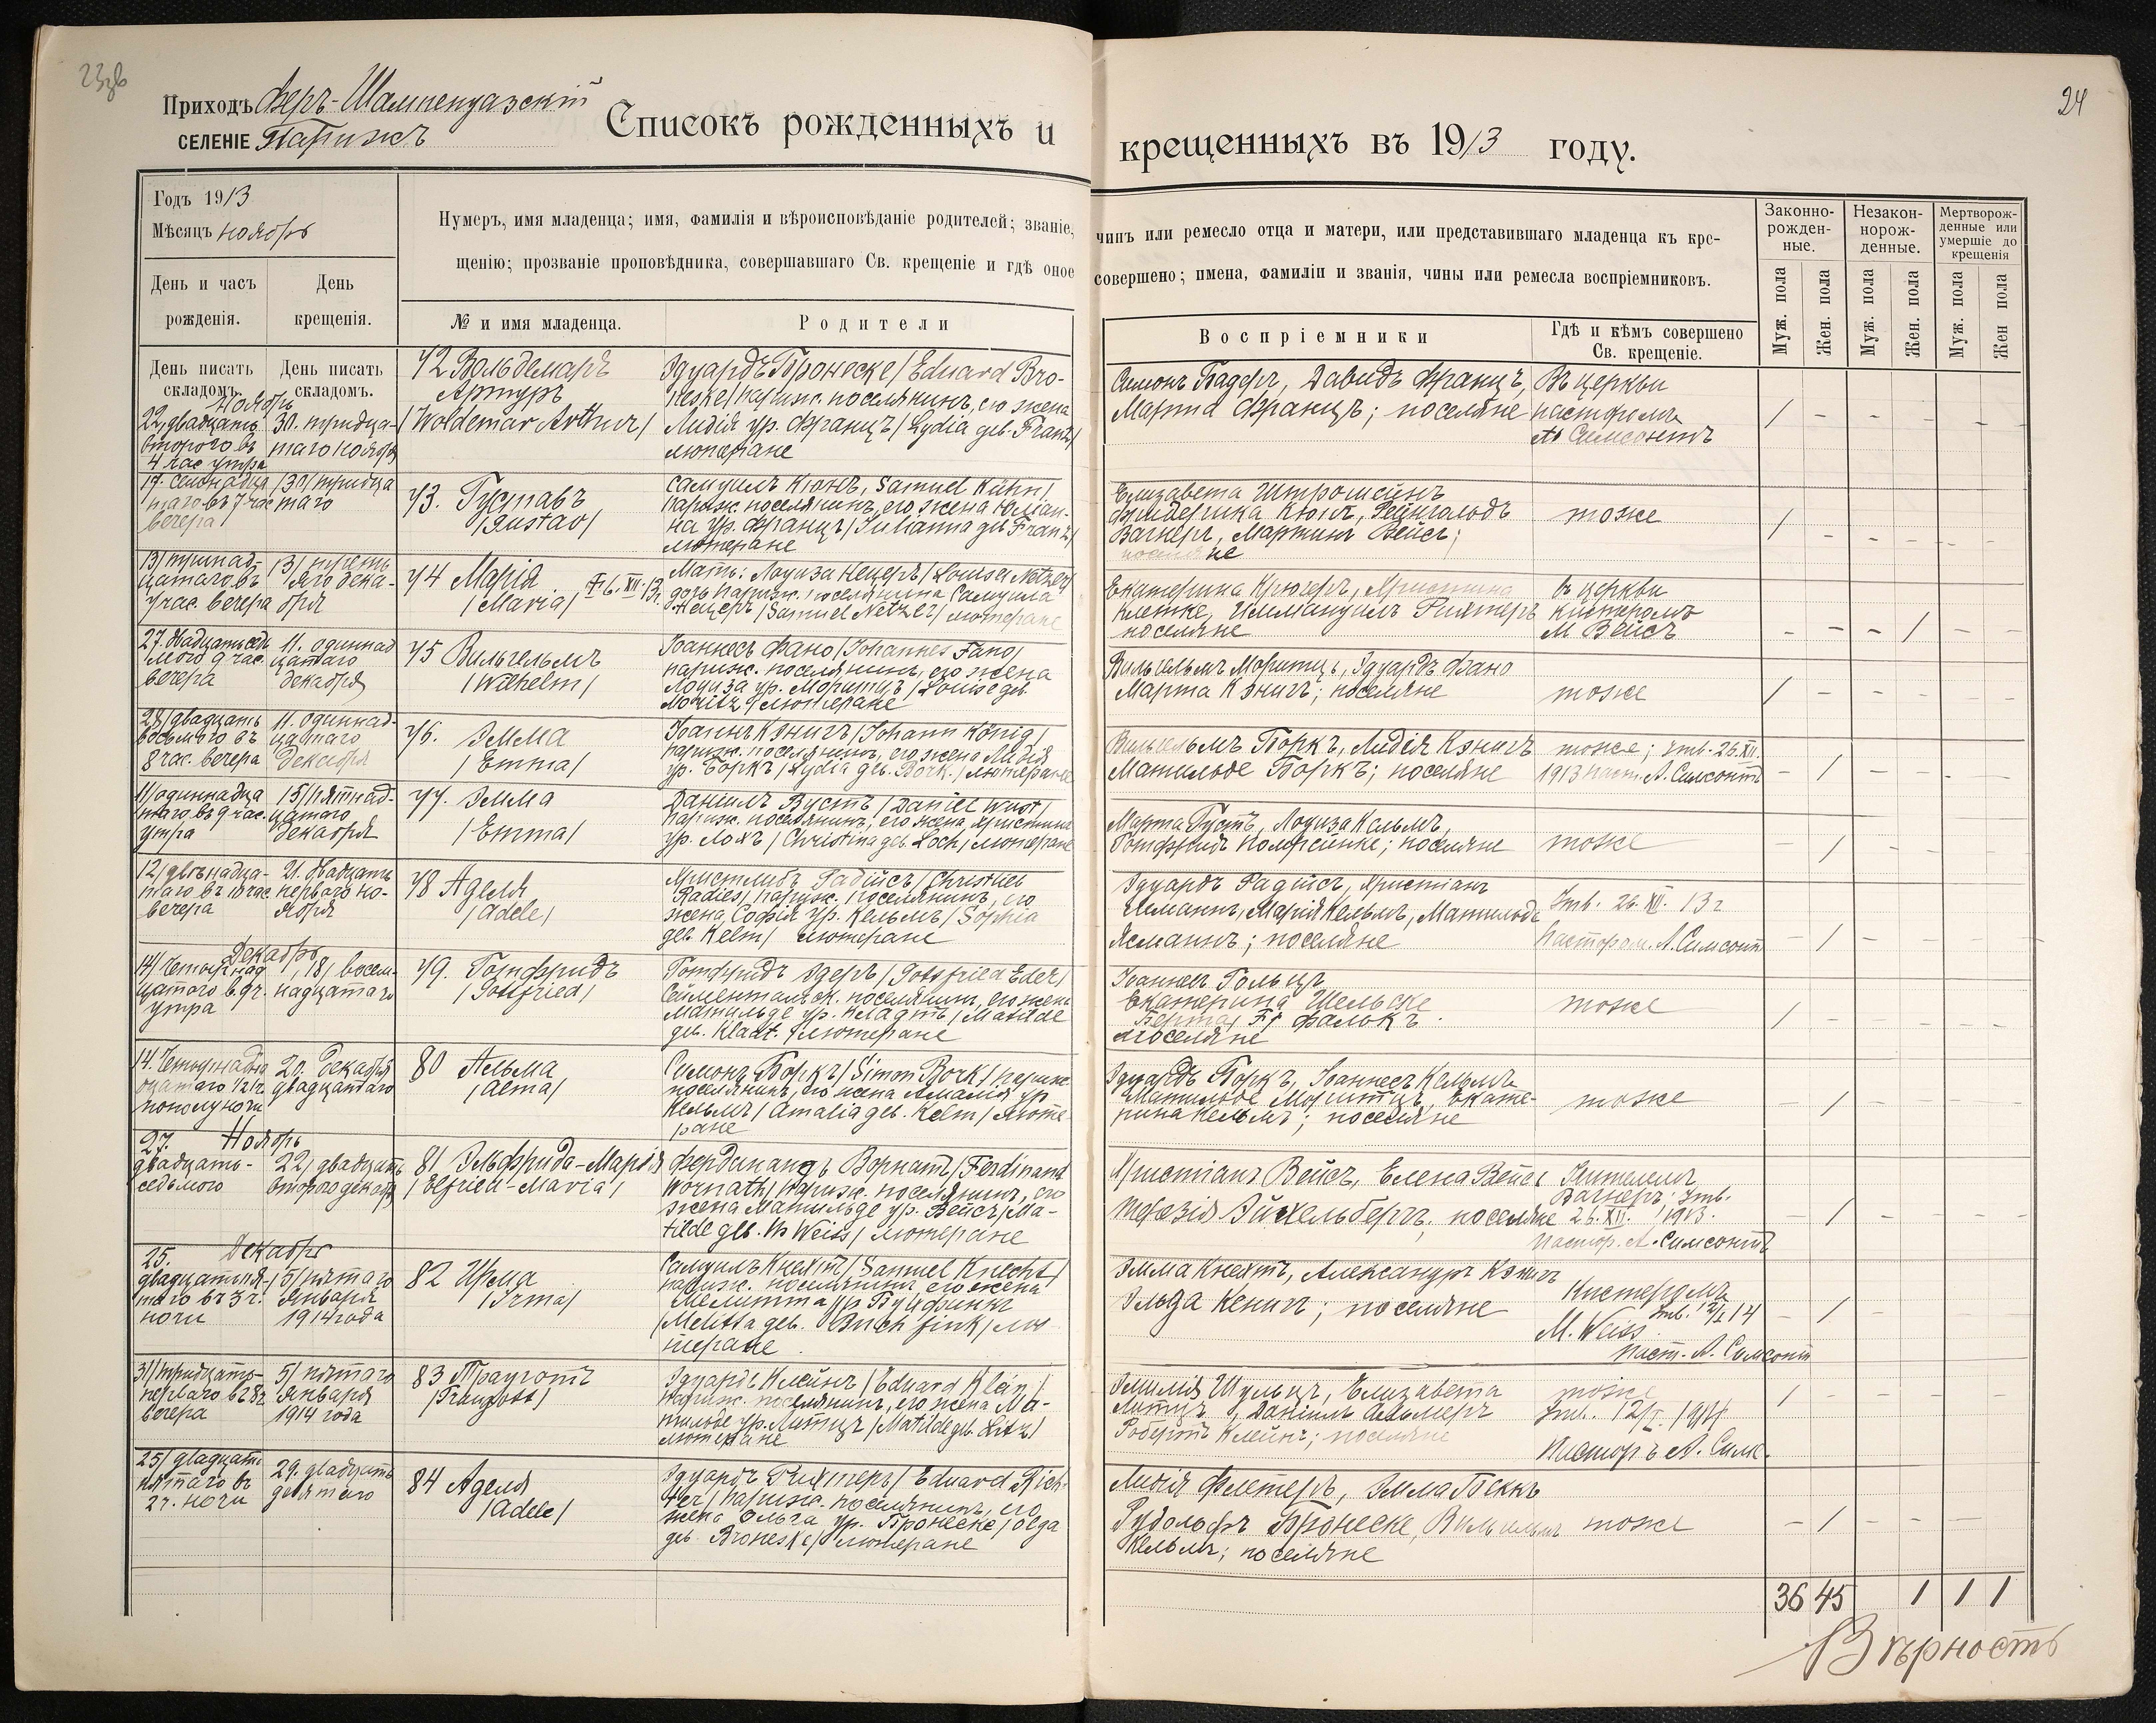 23 об
24
Приходъ Феръ-Шампенуазскій
СЕЛЕНІЕ Парижъ
Списокъ рожденныхъ и крещенныхъ въ 1913 году.
Годъ 1913
Мѣсяцъ ноябрь
День и часъ рожденія.
День крещенія.
Нумеръ, имя младенца; имя, фамилія и вѣроисповѣданіе родителей; званіе, чинъ или ремесло отца и матери, или представившаго младенца къ кре-
щенію; прозваніе проповѣдника, совершавшаго Св. крещеніе и гдѣ оное совершено; имена, фамиліи и званія, чины или ремесла воспріемниковъ.
№ и имя младенца.
Родители
Воспріемники
Гдѣ и кѣмъ совершено Св. крещеніе.
Законно-рожден-ные.
Незакон-норож-денные.
Мертворож-денные или умершіе до крещенія
Муж. пола
Жен. пола
Муж. пола
Жен. пола
Муж. пола
Жен пола
День писать складомъ.
День писать складомъ.
Ноябрь
22, двадцать
второго въ
4 час утра
30. тридца-
таго ноября
72 Вольдемаръ
Артуръ
/Woldemar Arthur/
Эдуардъ Бронеске/Eduard Bro-
neske/париж. поселянинъ, его жена
Лидія ур. Францъ/Lydia geb. Franz/
лютеране
Симонъ Бадеръ, Давидъ Францъ,
Марта Францъ; поселяне
Въ церкви
пасторомъ
А. Симсонъ
/ - - - - -
17. семнадца
таго въ 7 час
вечера
/30/ тридца
таго
73. Густавъ
/Gustav/
Самуилъ Кюнъ, Samuel Kühn/
париж. поселянинъ, его жена Юліан-
на ур. Францъ/Julianna geb Franz/
лютеране
Елизавета Штромсинъ
Фридерика Кюнъ, Рейнгольдъ
Вагнеръ, Мартинъ Вейсъ;
поселяне
тоже
/ - - - - -
13/тринад-
цатаго въ
7 час. вечера
/3/ третья-
яго дека-
бря
74 Марія
/Maria/
† 6. XII. 13.
Мать: Лоуиза Нецеръ/Louisa Netzer/
дочь париж. поселянина Самуила
Нецеръ/Samuel Netzer/лютеране
Екатерина Крюгеръ, Христина
Клетке, Иммануилъ Рихтеръ
поселяне
въ церкви
кистеромъ
М Вейсъ
- - - / - -
27. двадцатьседь
мого 9 час.
вечера
11. одиннад
цатаго
декабря
75 Вильгельмъ
/Wilhelm/
Іоаннесъ Фано/Johannes Fano/
париж. поселянинъ, его жена
Лоуиза ур. Морицъ/Louise geb
Moritz/лютеране
Вильгельмъ Морицъ, Эдуардъ Фано
Марта Кэнигъ; поселяне
тоже
/ - - - - -
28/двадцать
восьмого въ
8 час. вечера
11. одиннад-
цатаго
декабря
76. Эмма
/Emma/
Іоаннъ Кэнигъ/Johann König/
париж. поселянинъ, его жена Лидія
ур. Боркъ/Lydia geb. Bork./лютеране
Вильгельмъ Боркъ, Лидія Кэнигъ
Матильде Боркъ; поселяне
тоже; утв. 26.XII.
1913 паст. А. Симсонъ
- / - - - -
11/одиннадца
таго въ 9 час.
утра
15/пятнад-
цатаго
декабря
77. Эмма
/Emma/
Даніилъ Вустъ/Daniel Wust/
париж. поселянинъ, его жена Христина
ур. Лохъ/Christina geb. Loch/лютеране
Марта Вустъ, Лоуиза Кельмъ,
Готфридъ Помренке; поселяне
тоже
- / - - - -
12/двѣнадца-
таго въ 10 час
вечера
21. двадцать
перваго но-
ября
78 Аделя
/Adele/
Христлибъ Радисъ/Christlieb
Radies/париж. поселянинъ, его
жена, Софія ур. Кельмъ/Sophia
geb. Kelm/ лютеране
Эдуардъ Радисъ, Христіанъ
Ясманнъ, Марія Кельмъ, Матильде
Ясманнъ; поселяне
Утв. 26.XII. 13 г
Пасторомъ А. Симсонъ
- / - - - -
Декабрь
14/Четырнад
цатаго в. 9 ч.
утра
/18/ восем-
надцатаго
79. Готфридъ
/Gottfried/
Готфридъ Эдеръ/Gottfried Eder/
Сейментальск. поселянинъ, его жена
Матильде ур. Кладтъ/Matilde
geb. Kladt./лютеране
Іоаннесъ Гольцъ
Екатерина Шельске
Берта Фалькъ
поселяне
тоже
/ - - - - -
14. Четырнадца
цатаго 12 ч.
пополуночи
20. Декабря
двадцатаго
80 Альма
/Alma/
Симонъ Боркъ/Simon Bork/париж
поселянинъ, его жена Амалія ур
Кельмъ/Amalia geb. Kelm/люте-
ране
Эдуардъ Боркъ, Іоаннесъ Кельмъ
Матильде Морицъ, Екате-
рина Кельмъ; поселяне
тоже
- / - - - -
Ноябрь
27.
двадцать-
седьмого
22/двадцать
второго декабр.
81 Эльфрида-Марія
/Elfried-Maria/
Фердинандъ Ворнатъ/Ferdinand
Wornath/париж. поселянинъ, его
жена Матильде ур. Вейсъ/Ma-
tilde geb. Weiss/лютеране
Христіанъ Вейсъ, Елена Вейсъ
Терезія Эйхельбергъ, поселяне
Учителемъ
Вагнеръ; утв.
26.XII. 1913.
Пастор. А. Симсонъ
- / - - - -
Декабрь
25.
двадцатьпя-
таго въ 3 ч.
ночи
/5/пятаго
Января
1914 года
82 Ирма
/Irma/
Самуилъ Кнехтъ/Samuel Knecht/
париж. поселянинъ, его жена
Мелитта ур Бухфинкъ
/Melitta geb. Buchfink/лю
теране.
Эмма Кнехтъ, Александръ Кэнигъ
Эльза Кенигъ; поселяне
Кистеромъ
М. Weiss. утв. 12/I 14
Паст. А. Симсонъ
- / - - - -
31/тридцать-
перваго в 8 ч
вечера
5/пятаго
января
1914 года
83 Трауготъ
/Traugott/
Эдуардъ Клейнъ/Eduard Klein/
париж. поселянинъ, его жена Ма-
тильде ур. Литцъ/Matilde geb. Litz/
лютеране
Эмилія Шульцъ, Елизавета
Литцъ, Даніилъ Альмеръ
Робертъ Клейнъ; поселяне
тоже
Утв. 12/I. 1914
Пасторъ А. Симс.
/ - - - - -
25/двадцать
пятаго въ
2 ч. ночи
29. двадцать
девятаго
84 Аделя
/Adele/
Эдуардъ Рихтеръ/Eduard Rich-
ter/париж. поселянинъ, его
жена Ольга ур. Бронеске/Olga
geb. Broneske/лютеране
Лидія Флетеръ, Эмма Беккъ
Рудольфъ Бронеске, Вильгельмъ
Кельмъ; поселяне
тоже
- / - - -
36 45 1 1 1
Вѣрность